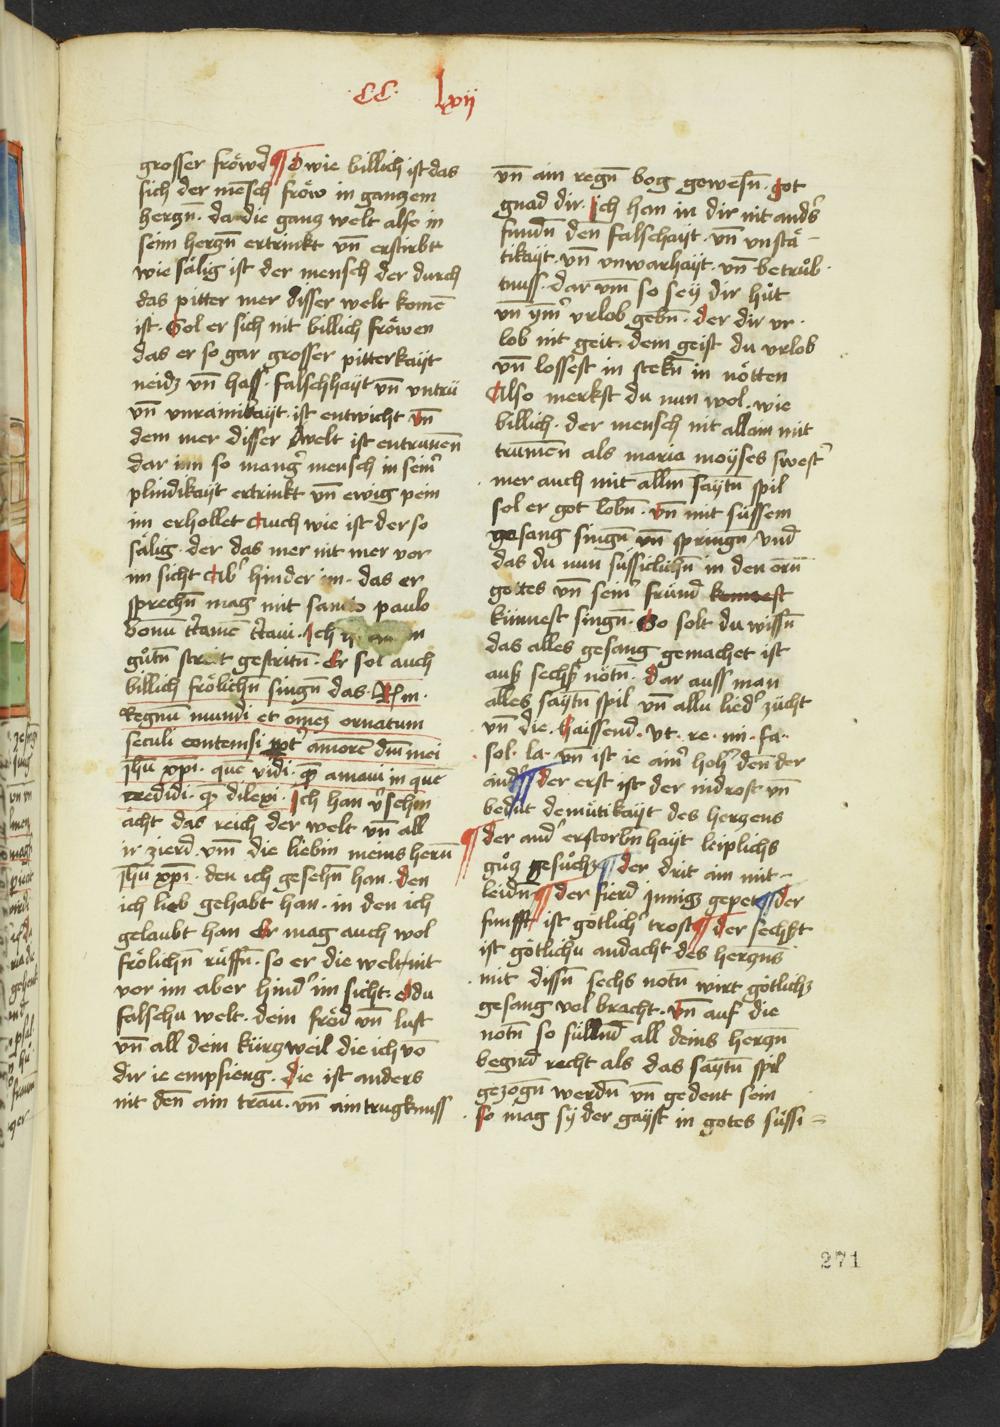 CC lxvij
grosser fröwd ¶ O wie billich ist das
sich der mēsch fröw in ganczem
herczn̄. da die gancz welt also in
seim herczn̄ ertrinkt vn̄ erstirbt
wie sälig ist der mensch der durch
das pitter mer disser welt komē
ist. Sol er sich nit billich fröwen
das er so gar grosser pitterkayt
neidz vn̄ hass. falschhayt vn̄ untrü
vn̄ vnrainikayt. ist entwicht. Vn̄
dem mer disser welt ist entrunnen̄
dar inn so mang' mensch in seinr̄
plindikayt ertrinkt vn̄ ewig pein
im erhollet Auch wie ist der so
sälig. der das mer nit mer vor
im sicht Ab' hinder im. das er
sprechn̄ mag mit sancto paulo
bonū c̄tamē c̄taui. Ich
gůtn̄ streit gestritn̄. Er sol auch
billich frölichn̄ singn̄ das. R̄m.
Regnū mundi et om̄ez ornatum
seculi contemsi ppt' amorē dn̄i mei
jhū xp̄i. quē vidi. quē amaui in quē
credidi. quē dilexi. Ich han v'schen
ächt das reich der welt vn̄ all
ir zierd. vm̄ die liebin meins herrn̄
jhū xp̄i. den ich gesehn̄ han. den
ich lieb gehabt han. in den ich
gelaubt han Er mag auch wol
frölichn̄ rüffn̄. so er die welt nit
vor im aber hind' im sicht. O du
falschu welt. dein fröd vn̄ lust
vn̄ all dein kürczweil die ich vō
dir ie empfieng. Die ist anders
nit den̄ ain traū. vn̄ ain trugknuss
vn̄ ain regn̄ bog gewesn̄. Got
gnad dir. Ich han in dir nit and's
fundn̄ den̄ falschayt. vn̄ vnstä-
tikayt. vn̄ vnwarhayt. vn̄ betrůb.
nuss. dar vm̄ so sey dir hüt
vn̄ ym̄' vrlob gebn̄. der dir vr.
lob nit geit. dem geist du vrlob
vn̄ lossest in stekn̄ in nötten
Also merkst du nun wol. wie
billich. der mensch nit allain mit
trum̄en̄ als maria moyses swest'
mer auch mit allm̄ saytn̄ spil
sol er got lobn̄. vn̄ mit süssem
gesang singn̄ vn̄ springn̄ / Vnd
das du nun süssiclichn̄ in den orn̄
gottes vn̄ seinr̄ fründ
künnest singn̄. So solt du wissn̄
das alles gesang gemachet ist
auß sechß nötn̄. Dar auss man
alles saytn̄ spil vn̄ allu lied' zücht
vn̄ die. Haissend. Vt. re. mi. fa.
sol. la. vn̄ ist ie ainr̄ höh' den̄ der
and' ¶ der erst ist der nidrost vn̄
bedüt demütikayt des herczens
¶ der and' erstorbn̄hayt leiplichs
gůcz gesůchz ¶ der drit ain mit-
leidn̄ ¶ der fierd Innigs gepet ¶ der
funfft ist götlich' trost ¶ der sechßt
ist götlichu andacht des herczn̄s
mit dissn̄ sechs notn̄ wirt götlichz
gesang vol bracht. Vn̄ auf die
notn̄ so füllend all deins herczn̄
begird recht als das saytn̄ spil
gezogn̄ werdn̄ vn̄ gedent sein
So mag sy der gayst in gotes süssi-
271